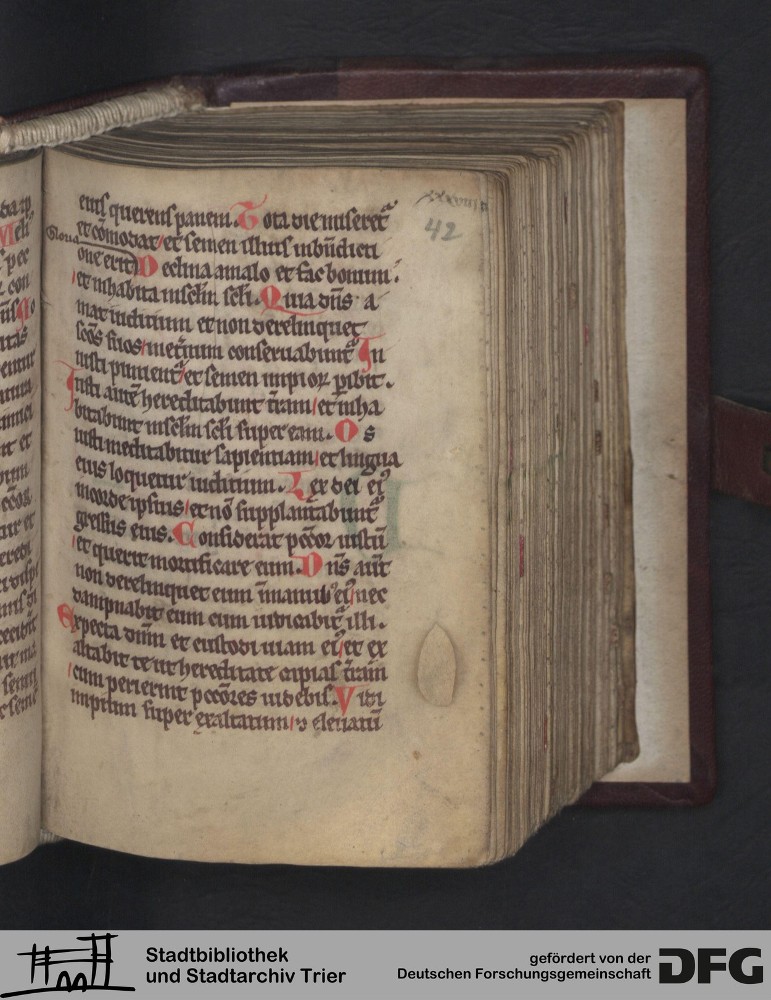 eius querens panem. Tota die miseret᷑
et cōmodat / et semen illius in bn̄dicti
one erit. Declina a malo et fac bonum.
/ et inhabita in sc̄lm sc̄li. Quia dn̄s a
mat iuditium et non derelinquet
sc̄os suos / in et̄num conseruabunt᷑ In
iusti punient᷑ / et semen impioꝝ ꝑibit.
Iusti aut̄ hereditabunt t̄ram / et inha
bitabunt in sc̄lm sc̄li super eam. Os
iusti meditabitur sapientiam / et lingua
eius loquetur iuditium. Lex dei ei᷒
in corde ipsius / et nō supplantabunt᷑
gressus eius. Considerat pc̄cor iustū
/ et querit mortificare eum. Dn̄s aut̄
non derelinquet eum in manib᷒ ei᷒ / nec
dampnabit eum cum iudicabit᷑ illi.
Expecta dn̄m et custodi uiam ei᷒ / et ex
altabit te ut hereditate capias t̄ram
/ cum perierint pc̄cōres uidebis. Vidi
impium super exaltatum / ⁊ eleuatū
42
Stadtbibliothek
und Stadtarchiv Trier
gefördert von der
Deutschen Forschungsgemeinschaft
DFG